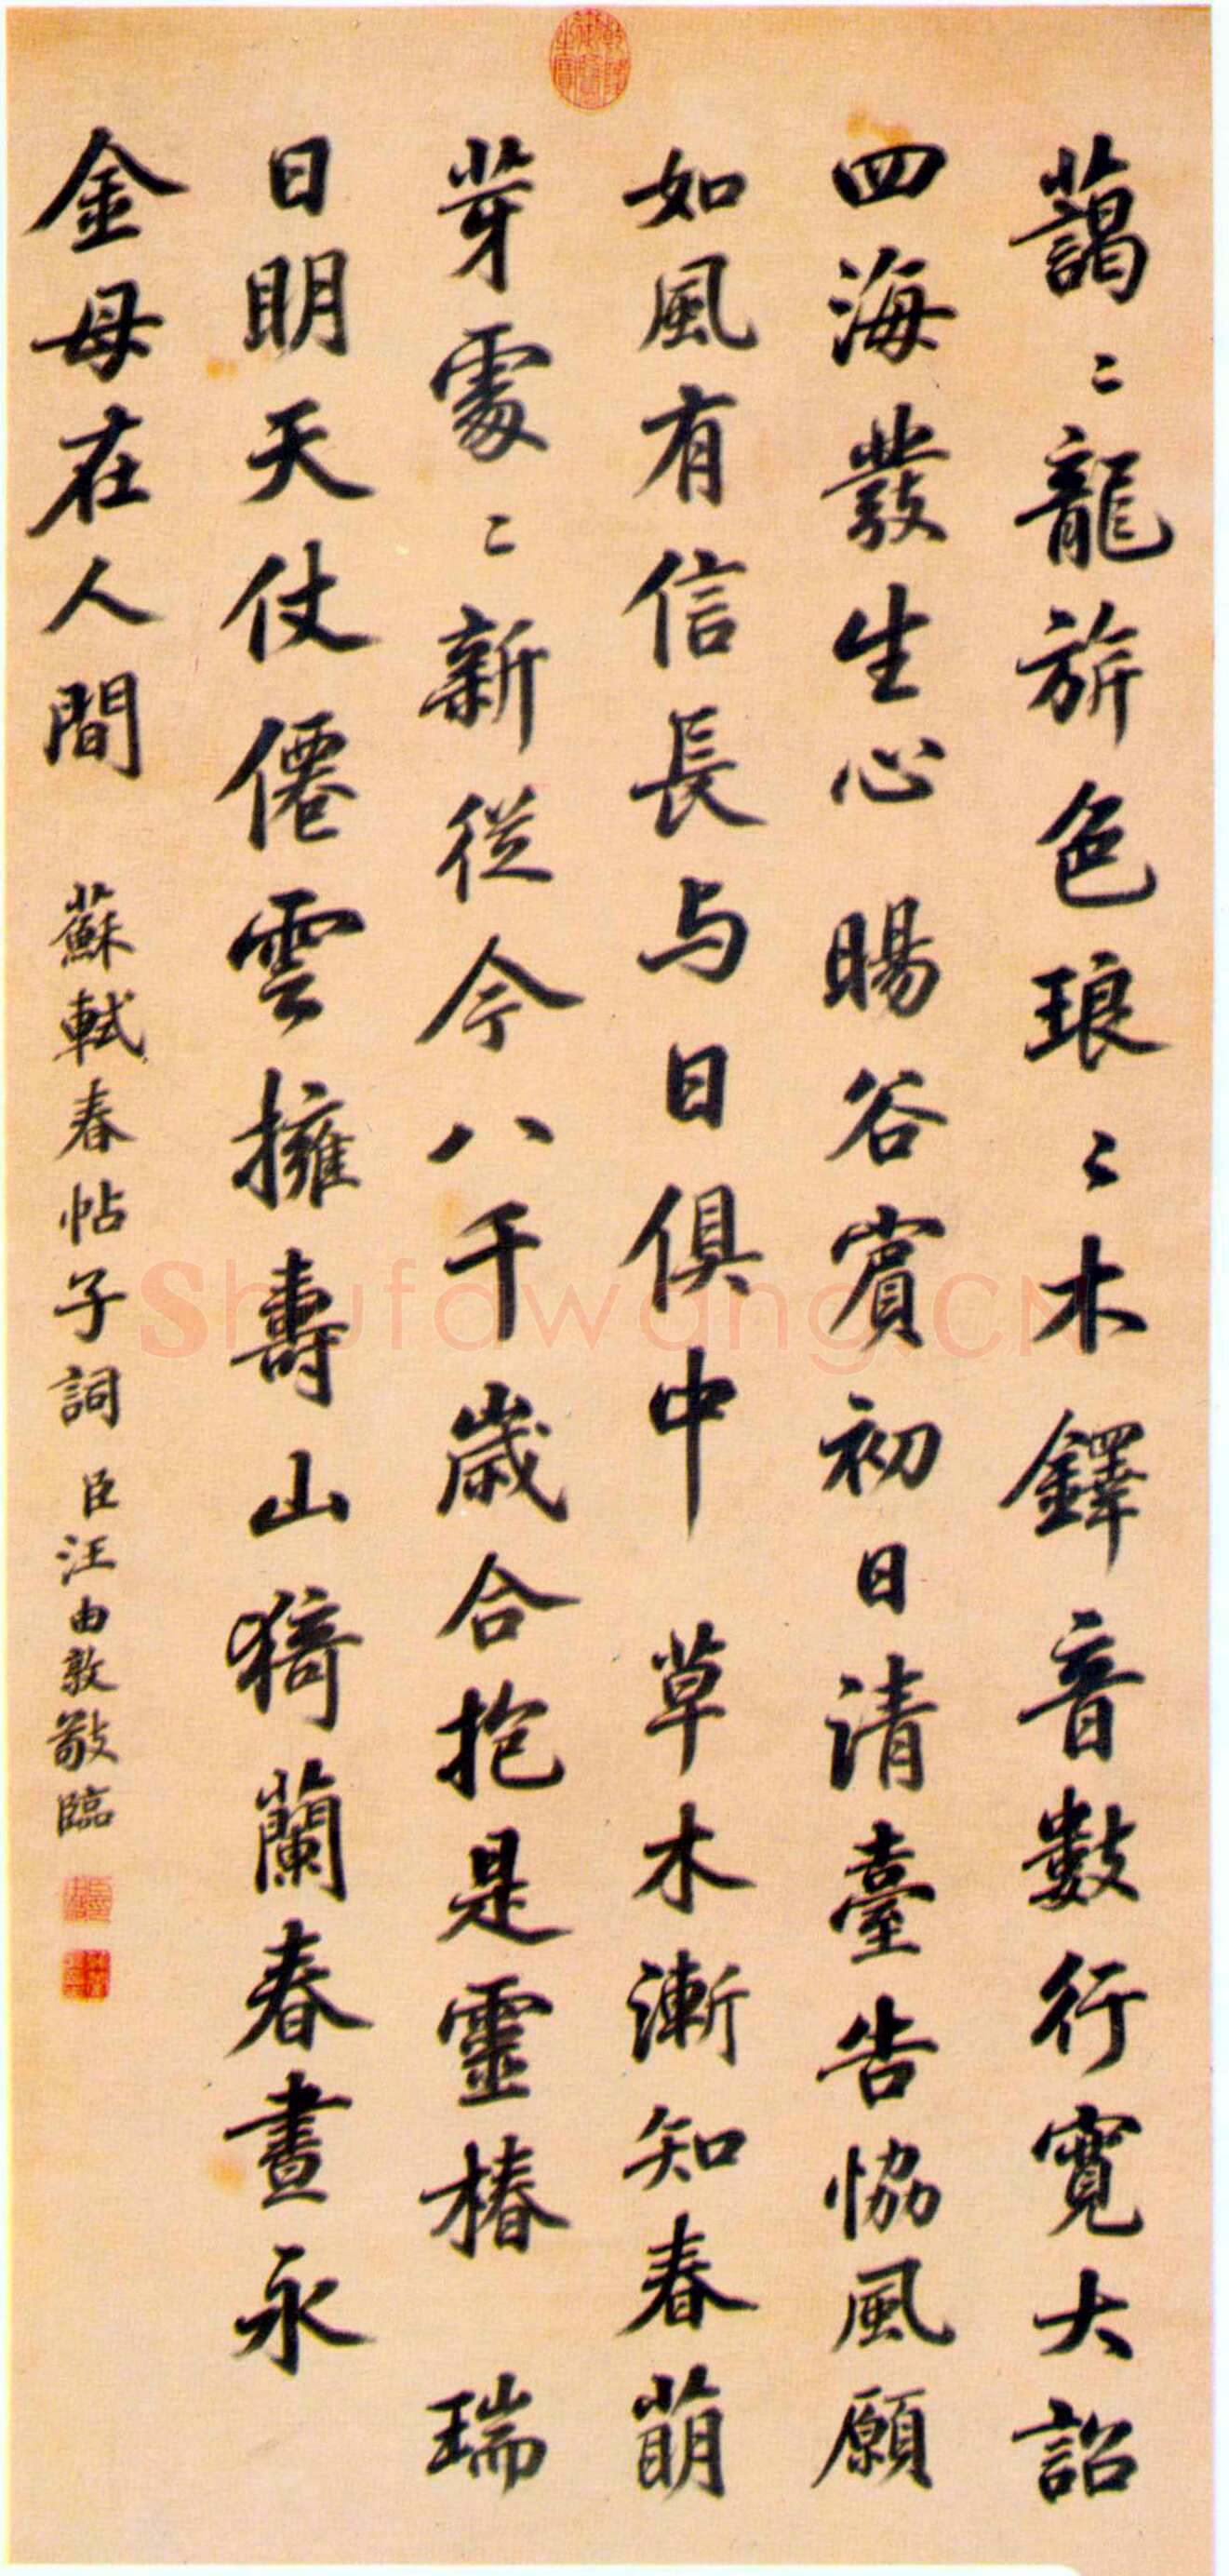 藹〻龍旂色琅〻木鐸音數行寬大詔
四海發生心　暘谷賓初日清臺告協風願
如風有信長与日俱中　草木漸知春萌
芽處〻新從今八千歲合抱是靈椿　瑞
日明天仗僊雲擁壽山猗蘭春晝永
金母在人間　蘇軾春帖子詞　臣汪由敦敬臨
Shufawang.CN